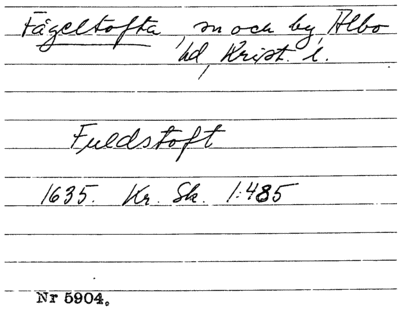 Fågeltofta, sn och by, Albo
hd, Krist. l.
Fuldstoft
1635. Kr. Sk. 1:485
Nr 5904.